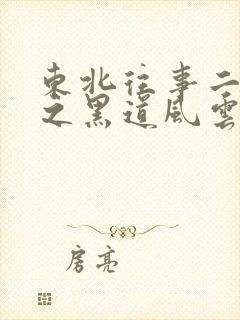 東北往事二
之黑道風雲
房亮